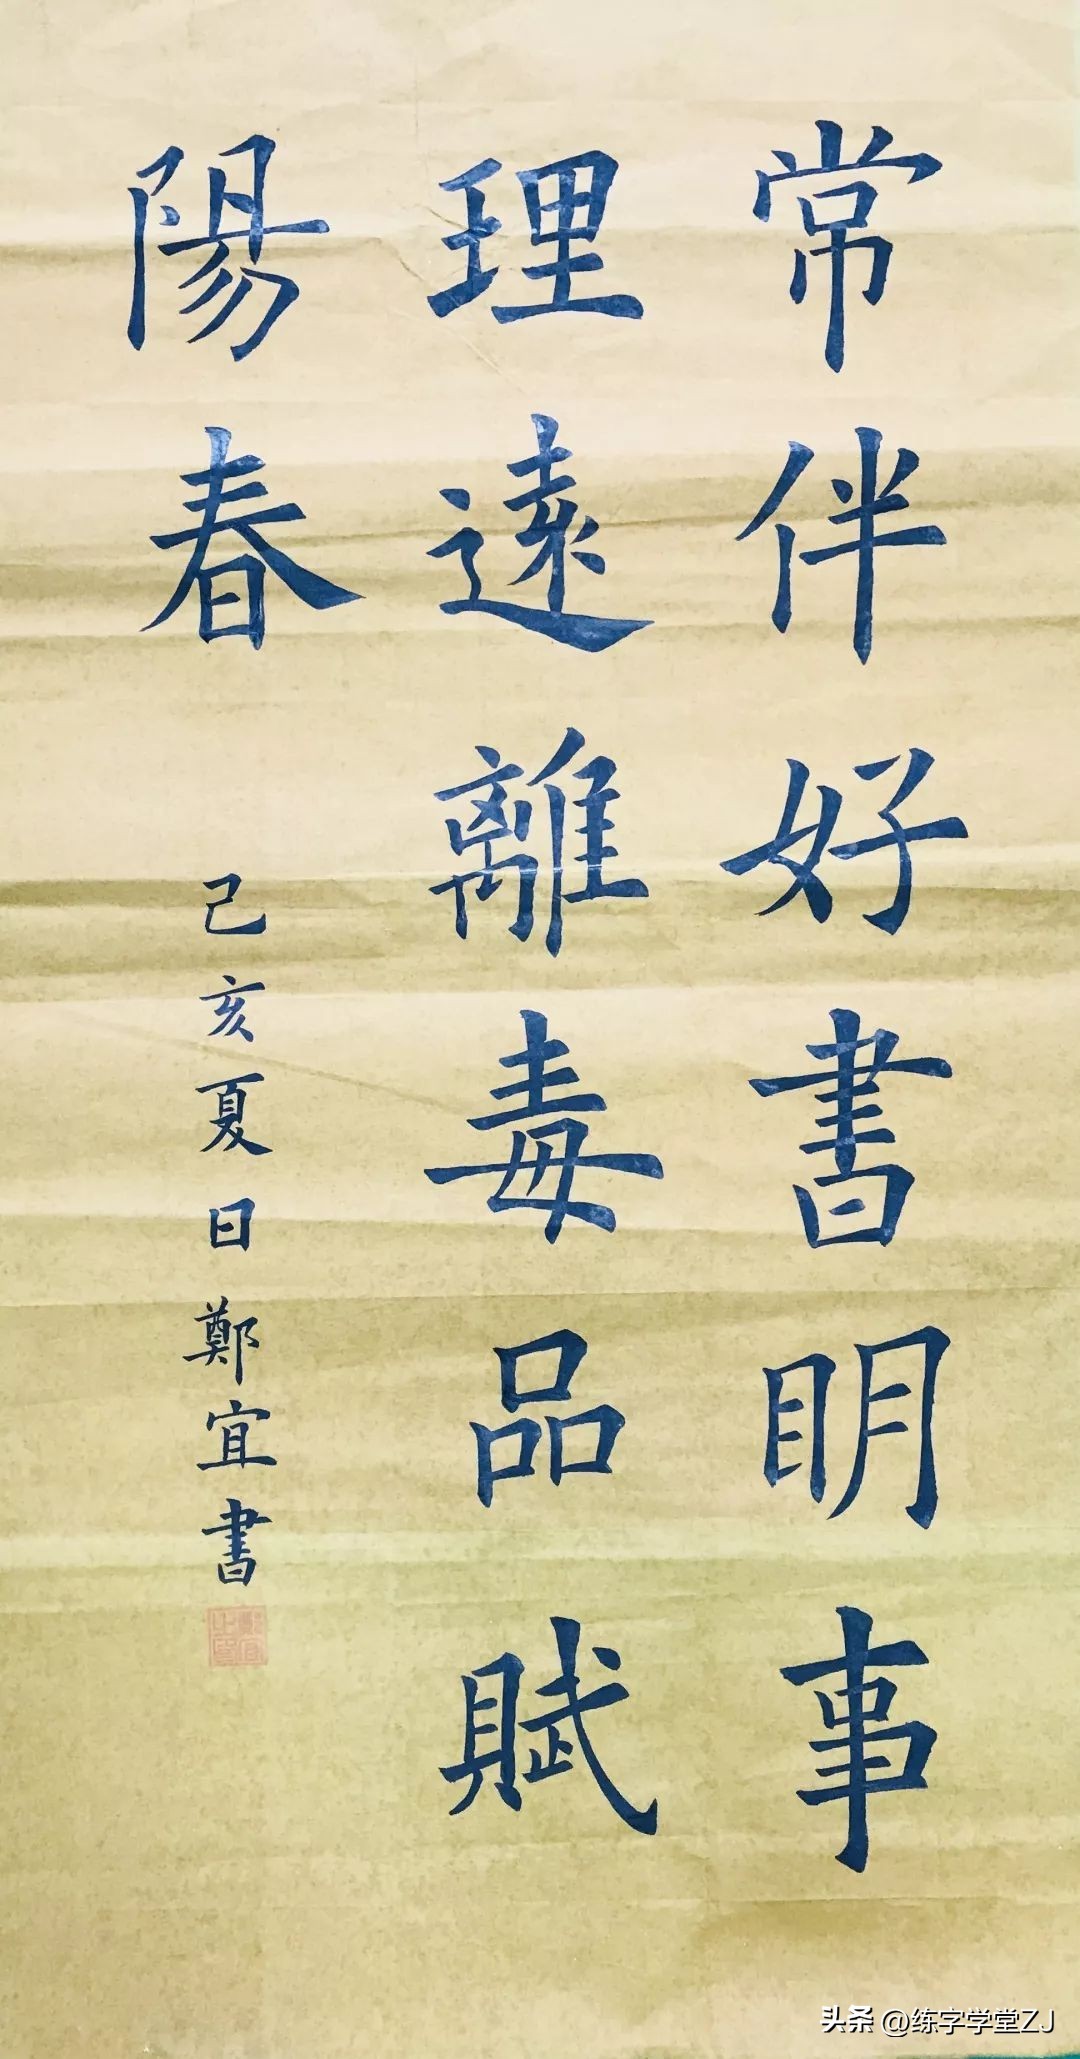 常伴好書明事
理遠離毒品賦
陽春
己亥夏日鄭宜書
头条 @练字学堂ZJ